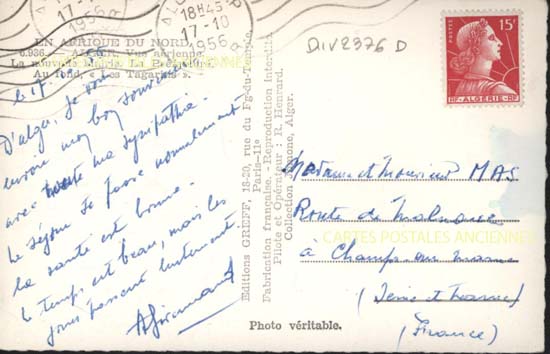 17-10
1956
ALGER
18H45
17-10
1956
EN AFRIQUE DU NORD
6.936 - ALGER. Vue aérienne.
La nouvelle Mairie. La Préfecture.
Au fond, « Les Tagarins ».
DIV2376 D
POSTES
15F
RF-ALGERIE-RF
le 17-
D'alger. Je vous
envoie mon bon souvenir
avec toute ma sympathie.
Le séjour se passe normalement
la santé est bonne.
le temps est beau, mais les
jours passent lentement.
Editions GREFF, 18-20, rue du Fg-du-Temple
Paris-11e
Fabrication française. - Reproduction interdite
Pilote et Opérateur : R. Henrard.
Collection Jomone, Alger.
Madame et Monsieur MAS
Route de Malnoue
à Champs sur marne
(Seine et marne)
(France)
CARTES POSTALES ANCIENNES
Photo véritable.